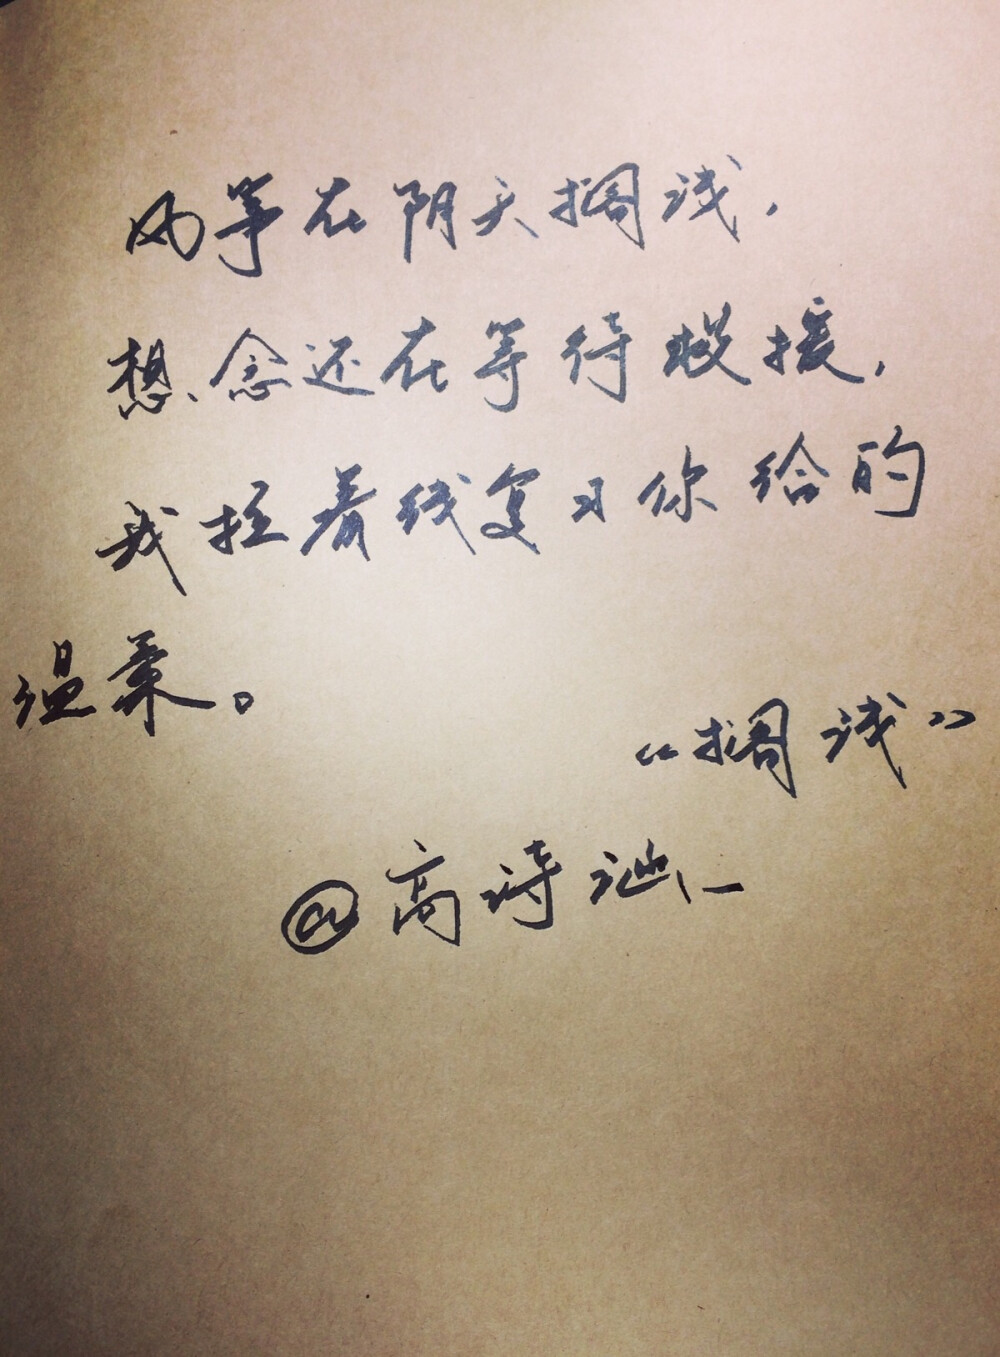 风筝在阴天搁浅，
想念还在等待救援，
我拉着线复习你给的
温柔。
《搁浅》
@高诗